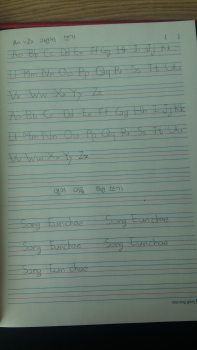 Aa~Zz 3번씩 쓰기
Aa Bb Cc Dd Ee Ff Gg Hh Ii Jj Kk
Ll Mm Nn Oo Pp Qq Rr Ss Tt Uu
Vv Ww Xx Yy Zz
Aa Bb Cc Dd Ee Ff Gg Hh Ii Jj Kk
Ll Mm Nn Oo Pp Qq Rr Ss Tt Uu
Vv Ww Xx Yy Zz
영어 이름 5번 쓰기
Song Eunchae Song Eunchae
Song Eunchae Song Eunchae
Song Eun chae